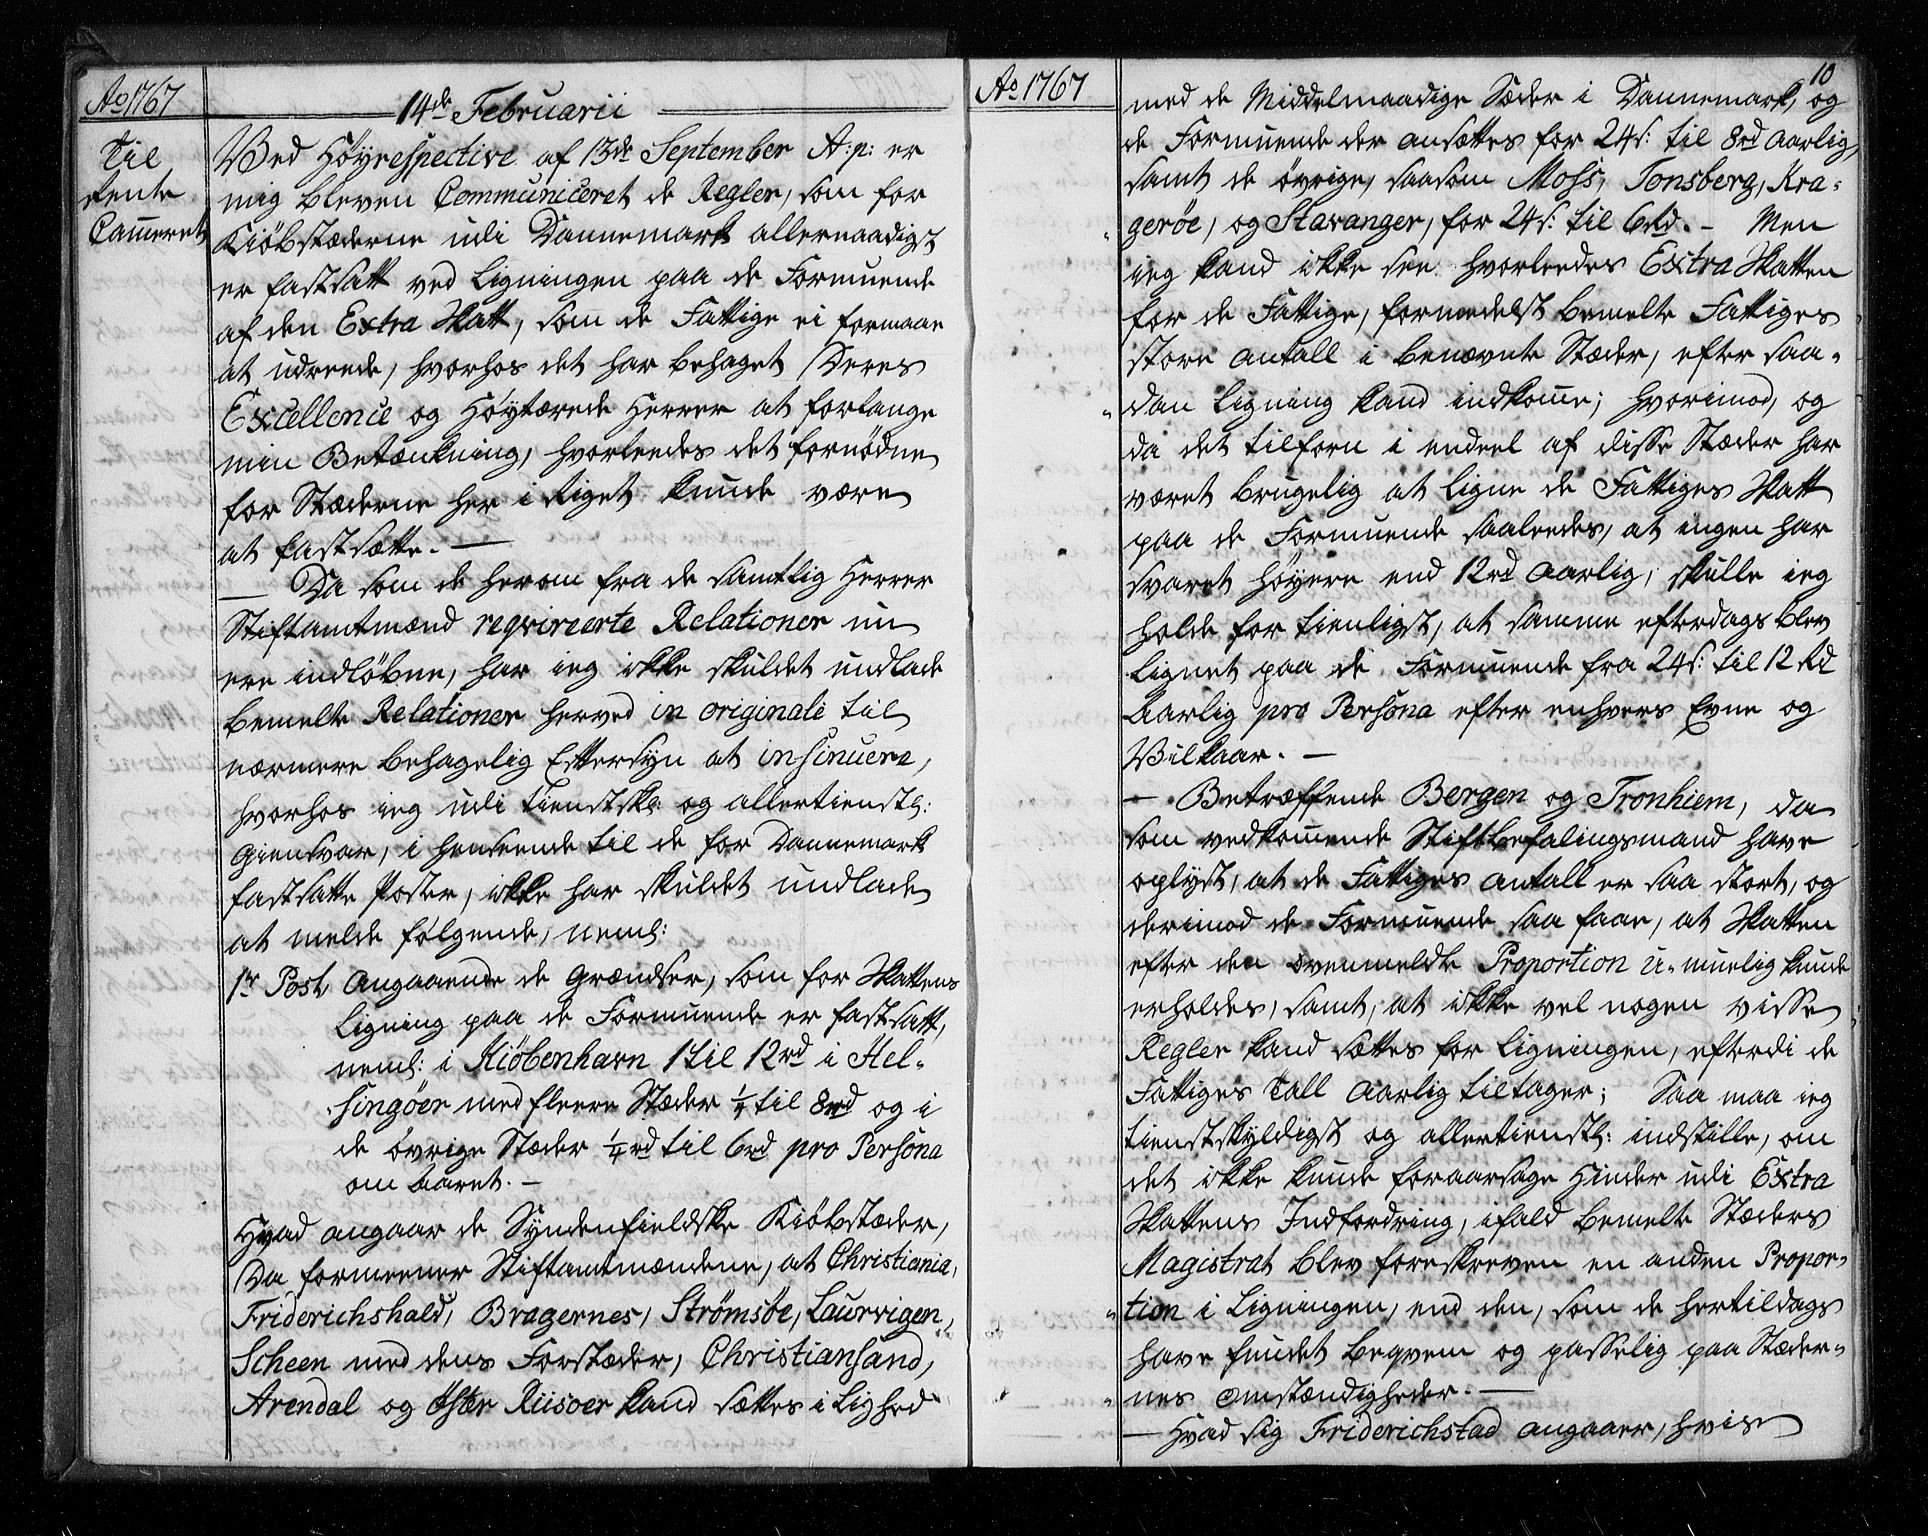 Ao 1767
14de Februarii
Til
Rente
Cam̄eret
Wed Høyrespective af 13de September A: p: er
mig bleven Communiceret de Regler, som for
Kiøbstæderne udi Dannemark allernaadigst
er fastsatt ved Ligningen paa de Formuende
af den Extra Skatt, som de Fattige ei formaar
at udreede, hvorhos det har behaget Deres
Excellence og Høytærede Herrer at forlange
min Betænkning, hvorleedes det fornødne
for Stæderne her i Riget kunde være
at fastsætte. —
— Da som de herom fra de samtlig Herrer
Stiftamtmænd reqvireerte Relationer nu
ere indløbne, har ieg ikke skuldet undlade
bemelte Relationer herved in originali til
nærmere behagelig Eftersyn at insinuere,
hvorhos ieg udi tienstskl: og allertienstl:
Giensvar, i henseende til de for Dannemark
fastsatte Poster, ikke har skuldet undlade
at melde følgende, neml:
1ste Post, Angaaende de Grændser, som for Skattens
Ligning paa de Formuende er fastsatt,
neml: i Kiøbenhavn 1 til 12rd i Hel-
singöer med fleere Stæder ¼ til 8rd og i
de øvrige Stæder ¼rd til 6rd pro Persona
om Aaret. —
Hvad angaar de Syndenfieldske Kiøbstæder,
Da formeener Stiftamtmændene, at Christiania,
Friderichshald, Bragernes, Strömsöe, Laurvigen,
Scheen med dens Forstæder, Christiansand,
Arendal og Öster Riisöer kand sættes i Lighed
Ao 1767
10
med de Middelmaadige Stæder i Dannemark, og
de Formuende der ansættes for 24s: til 8rd Aarlig,
samt de øvrige, saasom Moss, Tonsberg, Kra-
geröe, og Stavanger, for 24s: til 6rd. — Men
ieg kand ikke see hvorleedes Extra Skatten
for de Fattige, formedelst bemelte Fattiges
store Antall i benævnte Stæder, efter saa-
dan Ligning kand indkom̄e; hvorimod, og
da det tilforn i endeel af disse Stæder har
været brugelig at ligne de Fattiges Skatt
paa de Formuende saaleedes, at ingen har
svaret høyere end 12rd Aarlig, skulle ieg
holde for tienligst, at samme efterdags blev
Lignet paa de Formuende fra 24s: til 12 Rd
Aarlig pro Persona efter enhvers Evne og
Vilkaar. —
— Betræffende Bergen og Tronhiem, da
som vedkom̄ende Stiftbefalingsmand have
oplyst, at de Fattiges Antall er saa stort, og
derimod de Formuende saa faae, at Skatten
efter den ovenmeldte Proportion u-muelig kunde
erholdes, samt, at ikke vel nogen visse
Regler kand sættes for Ligningen, efterdi de
Fattiges Tall Aarlig tiltager; Saa maa ieg
tienstskyldigst og allertienstl: indstille, om
det ikke kunde foraarsage Hinder udi Extra
Skattens Indfordring, ifald bemelte Stæders
Magistrat blev foreskreven en anden Propor-
tion i Ligningen, end den, som de hertildags
have fundet beqvem og passelig paa Stæder-
nes omstændigheder. —
— Hvad sig Friderichstad angaaer, hvis